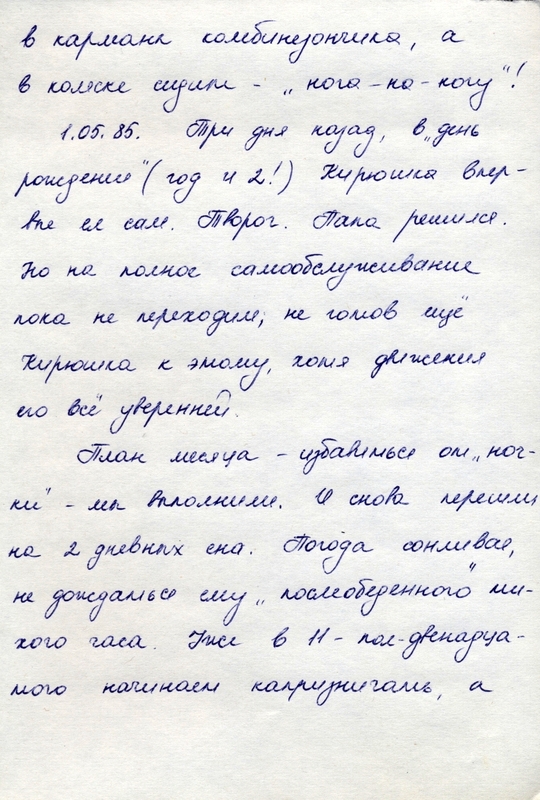 в кармане комбинезончика, а
в коляске сидит - „нога-на-ногу"!
1.05.85. Три дня назад, в „день
рождения" (год и 2!) Кирюшка впер-
вые ел сам. Творог. Папа решился.
Но на полное самообслуживание
пока не переходим; не готов ещё
Кирюшка к этому, хотя движения
его всё уверенней.
План месяца - избавиться от „ноч-
ки" - мы выполнили. И снова перешли
на 2 дневных сна. Погода сонливая,
не дождаться ему „послеобеденного" ти-
хого часа. Уже в 11 - пол-двенадца-
того начинаем капризничать, а